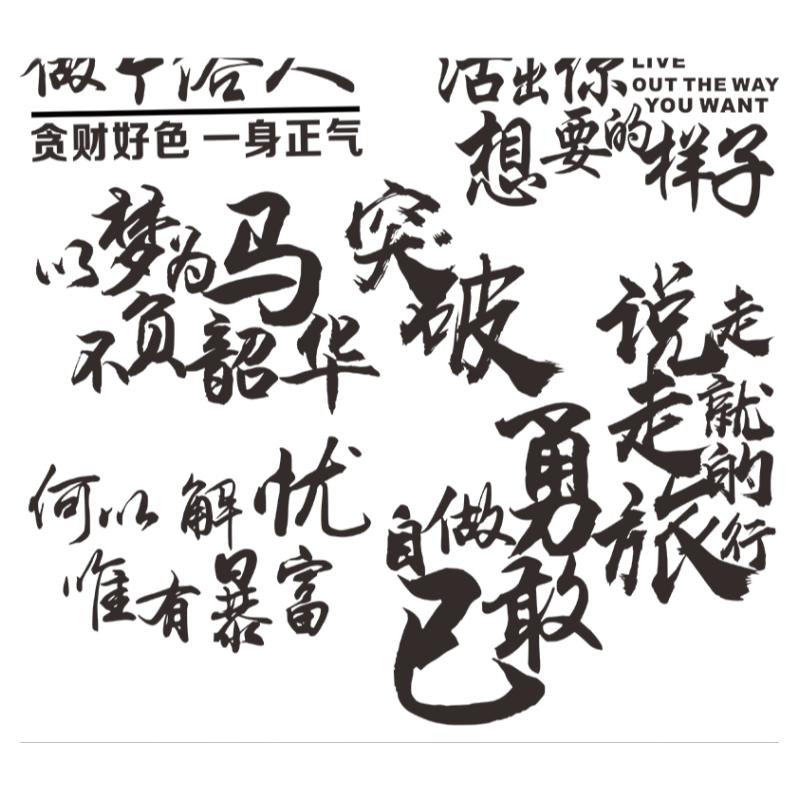 做个俗人
贪财好色 一身正气
活出你
LIVE
OUT THE WAY
YOU WANT
想要的样子
以梦为马
不负韶华
突破
说走
就走的
旅行
何以解忧
唯有暴富
勇敢
做自己